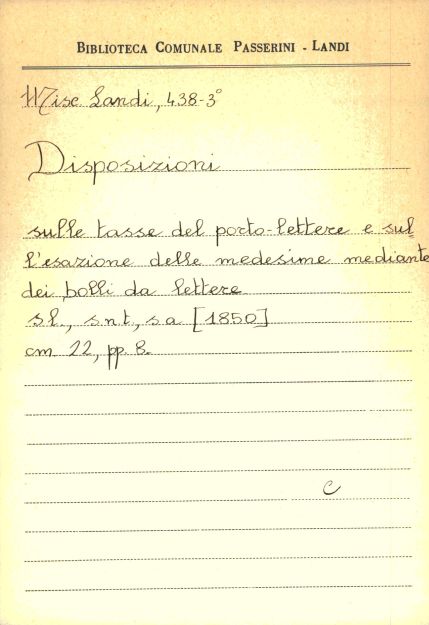 BIBLIOTECA COMUNALE PASSERINI - LANDI
Misc Landi, 438-3°
Disposizioni
sulle tasse del porto-lettere e sul=
l'esazione delle medesime mediante
dei bolli da lettere
s.l., s.n.t., s.a [1850]
cm 22, pp. 8.
C